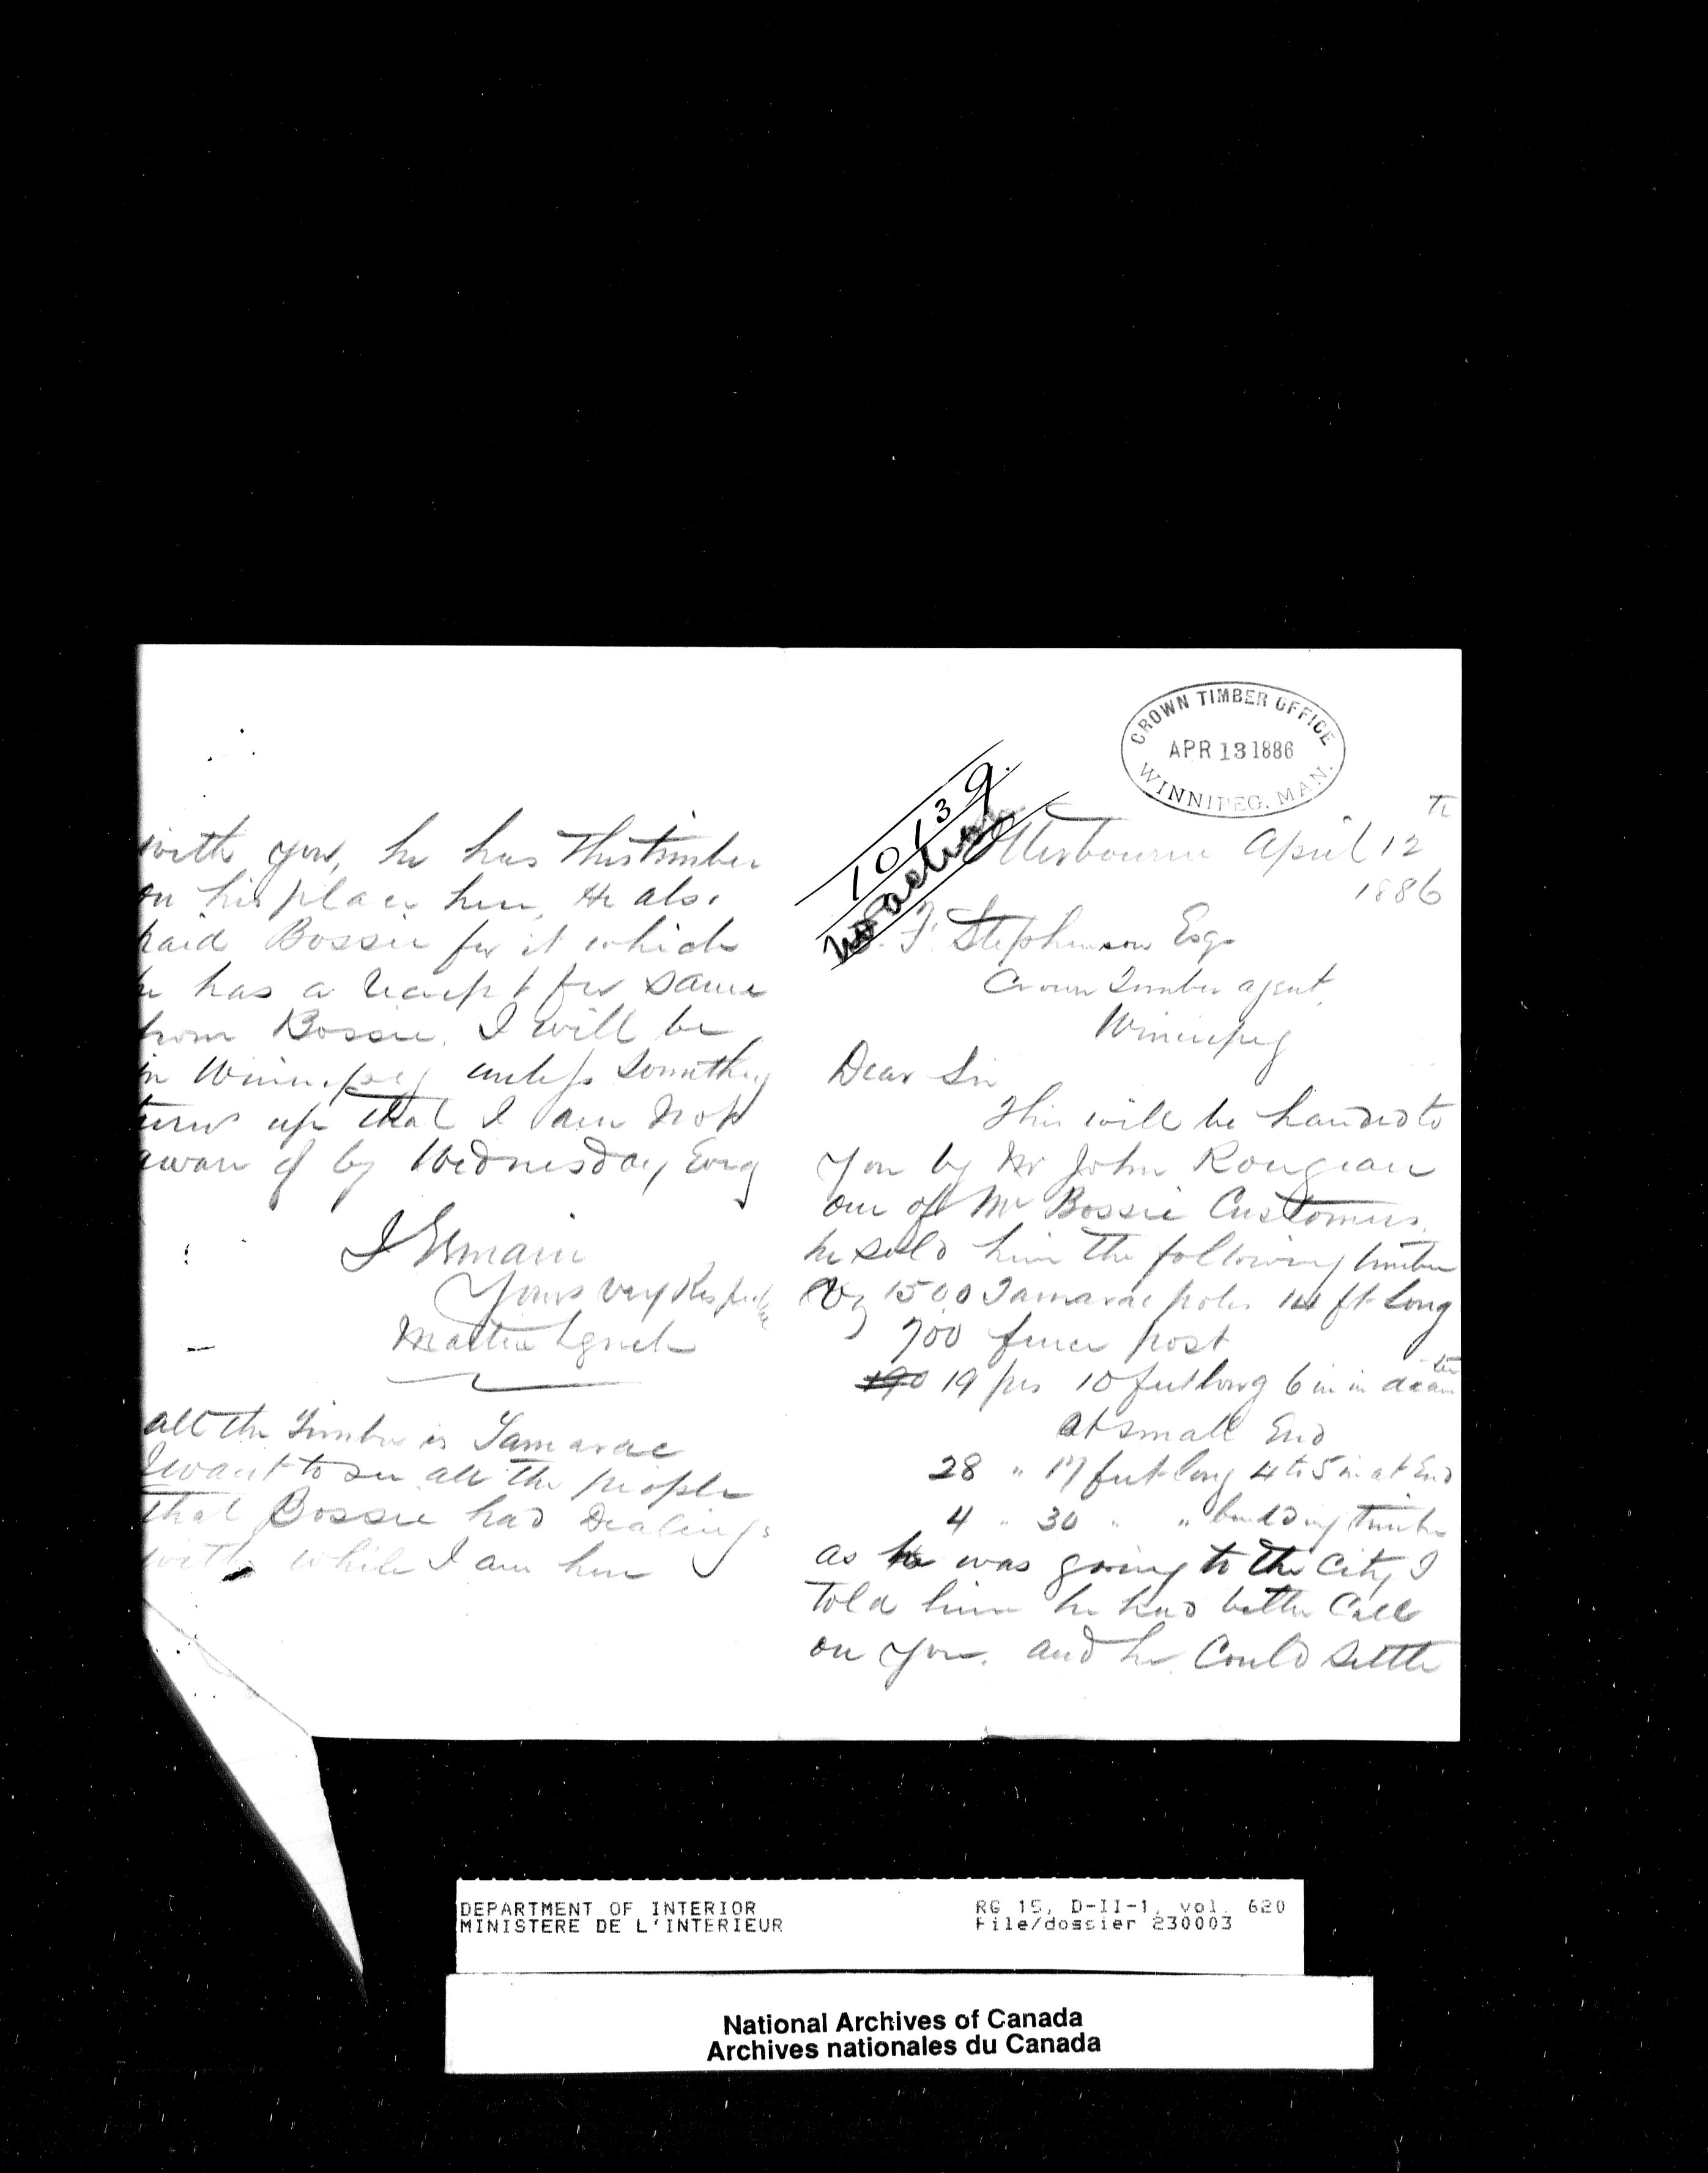 CROWN TIMBER OFFICE
APR 13 1886
WINNIPEG. MAN.
10139
no action
April 12th
1886
F. Stephenson Esq
Crown Timber agent.
Winnipeg
Dear Sir
This will be handed to
you by Mr John Rougeau
one of Mr Bossie Customers.
he sold him the following timber
Viz 1500 Tamarac poles 14 ft long
700 fence post
190 19 pcs 10 feet long 6 in in diameter
at small End
28 " 17 feet long 4 to 5 in at End
4 " 30 " " building timber
as he was going to the City I
told him he had better Call
on you. and he Could Settle
with you, he has this timber
on his place here, He also
paid Bossie for it which
he has a receipt for same
from Bossie. I will be
in Winnipeg unless Something
turns up that I am not
aware of by Wednesday Evng
I Remain
Yours very Respectfully
Martin Lynch
all the Timber is Tamarac
I want to see all the people
that Bossie had Dealings
with while I am here
DEPARTMENT OF INTERIOR
MINISTERE DE L'INTERIEUR
RG 15, D-II-1, vol. 620
File/dossier 230003
National Archives of Canada
Archives nationales du Canada